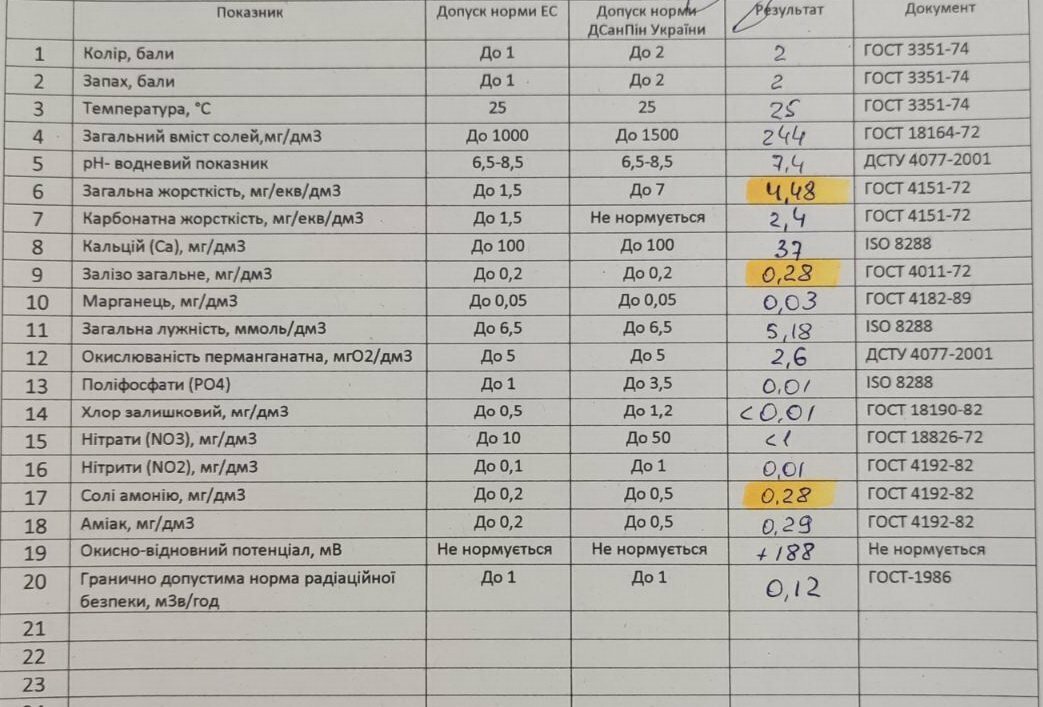 Показник Допуск норми ЕС Допуск норми ДСанПін України Результат Документ
1 Колір, бали До 1 До 2 2 ГОСТ 3351-74
2 Запах, бали До 1 До 2 2 ГОСТ 3351-74
3 Температура, °С 25 25 25 ГОСТ 3351-74
4 Загальний вміст солей,мг/дм3 До 1000 До 1500 244 ГОСТ 18164-72
5 рН- водневий показник 6,5-8,5 6,5-8,5 7,4 ДСТУ 4077-2001
6 Загальна жорсткість, мг/екв/дм3 До 1,5 До 7 4,48 ГОСТ 4151-72
7 Карбонатна жорсткість, мг/екв/дм3 До 1,5 Не нормується 2,4 ГОСТ 4151-72
8 Кальцій (Са), мг/дм3 До 100 До 100 37 ISO 8288
9 Залізо загальне, мг/дм3 До 0,2 До 0,2 0,28 ГОСТ 4011-72
10 Марганець, мг/дм3 До 0,05 До 0,05 0,03 ГОСТ 4182-89
11 Загальна лужність, ммоль/дм3 До 6,5 До 6,5 5,18 ISO 8288
12 Окислюваність перманганатна, мгО2/дм3 До 5 До 5 2,6 ДСТУ 4077-2001
13 Поліфосфати (РО4) До 1 До 3,5 0,01 ISO 8288
14 Хлор залишковий, мг/дм3 До 0,5 До 1,2 <0,01 ГОСТ 18190-82
15 Нітрати (NO3), мг/дм3 До 10 До 50 <1 ГОСТ 18826-72
16 Нітрити (NO2), мг/дм3 До 0,1 До 1 0,01 ГОСТ 4192-82
17 Солі амонію, мг/дм3 До 0,2 До 0,5 0,28 ГОСТ 4192-82
18 Аміак, мг/дм3 До 0,2 До 0,5 0,29 ГОСТ 4192-82
19 Окисно-відновний потенціал, мВ Не нормується Не нормується +188 Не нормується
20 Гранично допустима норма радіаційної До 1 До 1 0,12 ГОСТ-1986
безпеки, мЗв/год
21
22
23